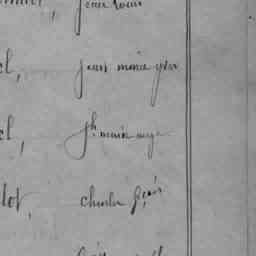 jean louis
el, jean marie yves
el, jh. marie ange
lot, charles fçois